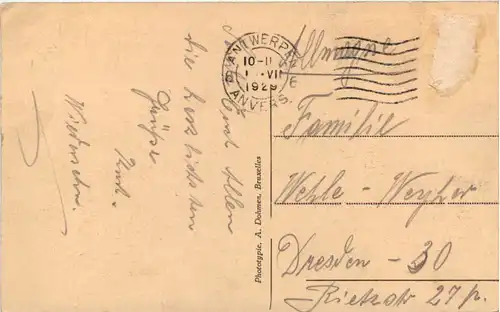 Euch Allen
die herzlichsten
Grüße
Auf
Wiedersehn.
ANTWERPEN
10-11
VII
1929
ANVERS
6
Allmagne
Familie
Wehle - Weyher
Dresden - 30
Rietzstr 27 p.
Phototypie. A. Dohmen, Bruxelles